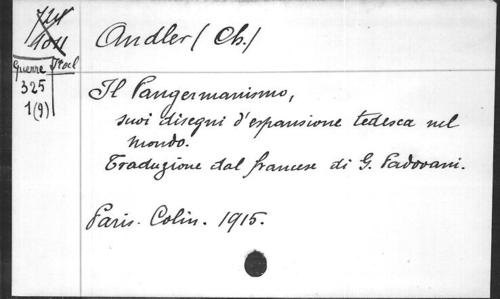 Andler (Ch.)
Guerre Ital
325
1(9)
Il Pangermanismo,
suoi disegni d'espansione tedesca nel
mondo.
Traduzione dal francese di G. Padovani.
Paris. Colin. 1915.